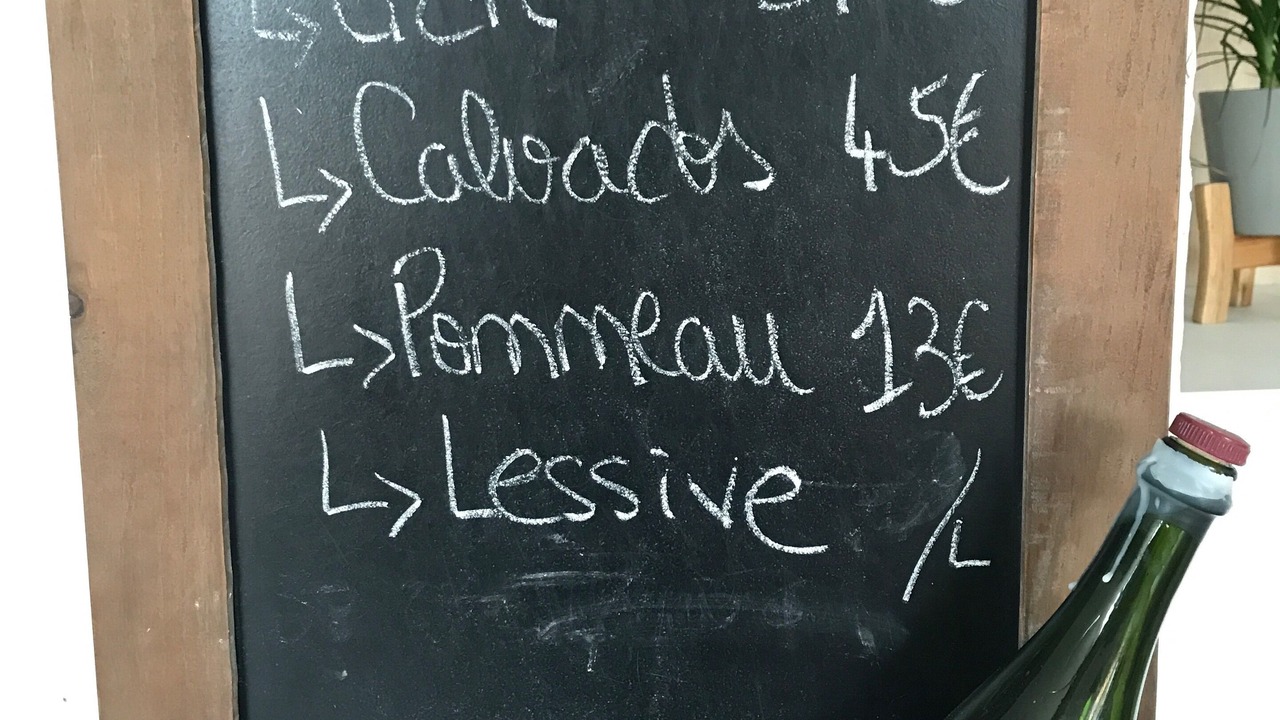 ↳ Calvados 45€
↳ Pommeau 13€
↳ Lessive /L